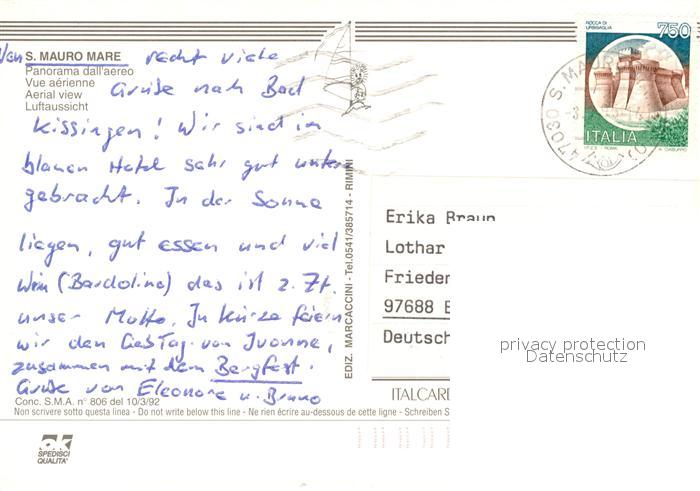 Von S. MAURO MARE recht viele
Panorama dall'aereo
Vue aérienne
Aerial view
Luftaussicht
Grüße nach Bad
Kissingen! Wir sind im
blauen Hotel sehr gut unter
gebracht. In der Sonne
liegen, gut essen und viel
Wein (Bardolino) das ist z. Zt.
unser Motto. In Kürze feiern
wir den GebTag von Ivonne,
zusammen mit dem Bergfest.
Grüße von Eleonore u. Bruno
Conc. S.M.A. n° 806 del 10/3/92
Non scrivere sotto questa linea - Do not write below this line - Ne rien écrire au-dessous de cette ligne - Schreiben S
OK
SPEDISCI
QUALITA'
EDIZ. MARCACCINI - Tel.0541/385714 - RIMINI
ROCCA DI
URBISAGLIA
750
ITALIA
I.P.Z.S. - ROMA
47030 S. MAUR
Erika Braun
Lothar
Frieden
97688 B
Deutsch
privacy protection
Datenschutz
ITALCARD